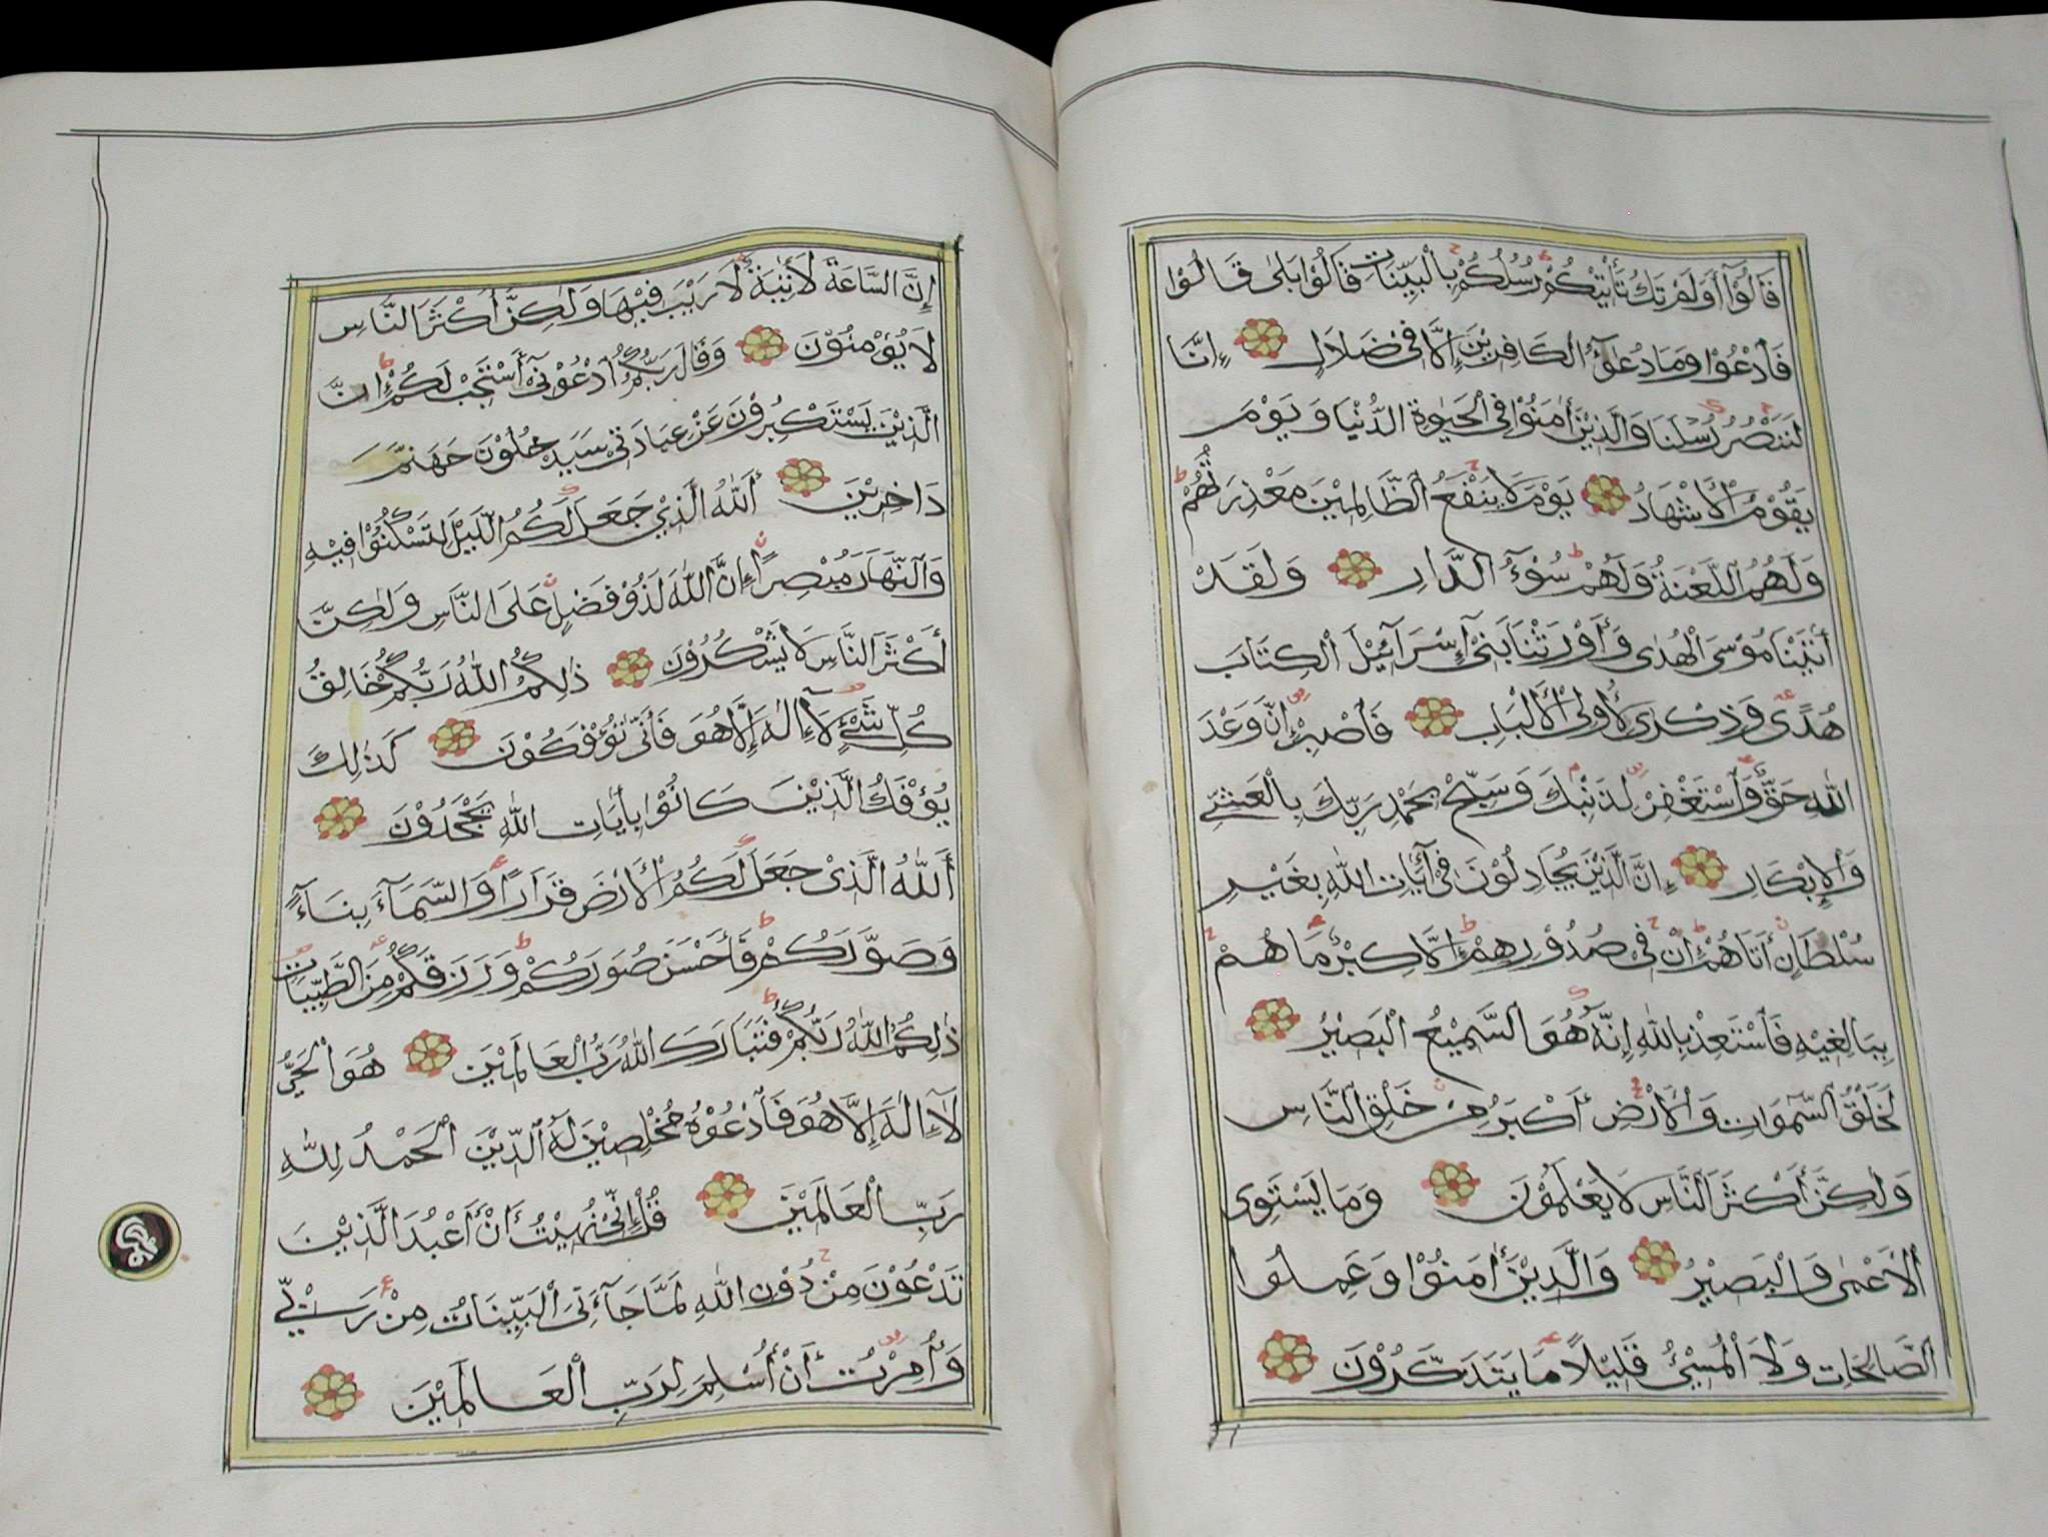 قَالُوْٓا أَوَلَمْ تَكُ تَأْتِيْكُمْ رُسُلُكُمْ بِالْبَيِّنَاتِ قَالُوْا بَلٰى قَالُوْا
فَادْعُوْا وَمَا دُعٰٓؤُ الْكَافِرِيْنَ إِلَّا فِى ضَلَالٍ إِنَّا
لَنَنْصُرُ رُسُلَنَا وَالَّذِيْنَ أٰمَنُوْا فِى الْحَيٰوةِ الدُّنْيَا وَيَوْمَ
يَقُوْمُ الْأَشْهَادُ يَوْمَ لَا يَنْفَعُ الظَّالِمِيْنَ مَعْذِرَتُهُمْ
وَلَهُمُ اللَّعْنَةُ وَلَهُمْ سُوْٓءُ الدَّارِ وَلَقَدْ
أٰتَيْنَا مُوْسَى الْهُدٰى وَأَوْرَثْنَا بَنِىْٓ إِسْرَآئِيْلَ الْكِتَابَ
هُدًى وَذِكْرٰى لِأُولِى الْأَلْبَابِ فَاصْبِرْ إِنَّ وَعْدَ
اللّٰهِ حَقٌّ وَاسْتَغْفِرْ لِذَنْبِكَ وَسَبِّحْ بِحَمْدِ رَبِّكَ بِالْعَشِيِّ
وَالْإِبْكَارِ إِنَّ الَّذِيْنَ يُجَادِلُوْنَ فِىْٓ أٰيَاتِ اللّٰهِ بِغَيْرِ
سُلْطَانٍ أَتَاهُمْ إِنْ فِى صُدُوْرِهِمْ إِلَّا كِبْرٌ مَا هُمْ
بِبَالِغِيْهِ فَاسْتَعِذْ بِاللّٰهِ إِنَّهُ هُوَ السَّمِيْعُ الْبَصِيْرُ
لَخَلْقُ السَّمٰوَاتِ وَالْأَرْضِ أَكْبَرُ مِنْ خَلْقِ النَّاسِ
وَلٰكِنَّ أَكْثَرَ النَّاسِ لَا يَعْلَمُوْنَ وَمَا يَسْتَوِى
الْأَعْمٰى وَالْبَصِيْرُ وَالَّذِيْنَ أٰمَنُوْا وَعَمِلُوا
الصَّالِحَاتِ وَلَا الْمُسِيْٓئُ قَلِيْلًا مَا يَتَذَكَّرُوْنَ
إِنَّ السَّاعَةَ لَأٰتِيَةٌ لَا رَيْبَ فِيْهَا وَلٰكِنَّ أَكْثَرَ النَّاسِ
لَا يُؤْمِنُوْنَ وَقَالَ رَبُّكُمُ ادْعُوْنِىْٓ أَسْتَجِبْ لَكُمْ إِنَّ
الَّذِيْنَ يَسْتَكْبِرُوْنَ عَنْ عِبَادَتِىْ سَيَدْخُلُوْنَ جَهَنَّمَ
دَاخِرِيْنَ أَللّٰهُ الَّذِيْ جَعَلَ لَكُمُ اللَّيْلَ لِتَسْكُنُوْا فِيْهِ
وَالنَّهَارَ مُبْصِرًا إِنَّ اللّٰهَ لَذُوْ فَضْلٍ عَلَى النَّاسِ وَلٰكِنَّ
أَكْثَرَ النَّاسِ لَا يَشْكُرُوْنَ ذٰلِكُمُ اللّٰهُ رَبُّكُمْ خَالِقُ
كُلِّ شَيْءٍ لَآ إِلٰهَ إِلَّا هُوَ فَأَنّٰى تُؤْفَكُوْنَ كَذٰلِكَ
يُؤْفَكُ الَّذِيْنَ كَانُوْا بِأٰيَاتِ اللّٰهِ يَجْحَدُوْنَ
أَللّٰهُ الَّذِىْ جَعَلَ لَكُمُ الْأَرْضَ قَرَارًا وَالسَّمَآءَ بِنَآءً
وَصَوَّرَكُمْ فَأَحْسَنَ صُوَرَكُمْ وَرَزَقَكُمْ مِنَ الطَّيِّبَاتِ
ذٰلِكُمُ اللّٰهُ رَبُّكُمْ فَتَبَارَكَ اللّٰهُ رَبُّ الْعَالَمِيْنَ هُوَ الْحَيُّ
لَآ إِلٰهَ إِلَّا هُوَ فَادْعُوْهُ مُخْلِصِيْنَ لَهُ الدِّيْنَ الْحَمْدُ لِلّٰهِ
رَبِّ الْعَالَمِيْنَ قُلْ إِنِّىْ نُهِيْتُ أَنْ أَعْبُدَ الَّذِيْنَ
تَدْعُوْنَ مِنْ دُوْنِ اللّٰهِ لَمَّا جَآءَنِىَ الْبَيِّنَاتُ مِنْ رَبِّيْ
وَأُمِرْتُ أَنْ أُسْلِمَ لِرَبِّ الْعَالَمِيْنَ